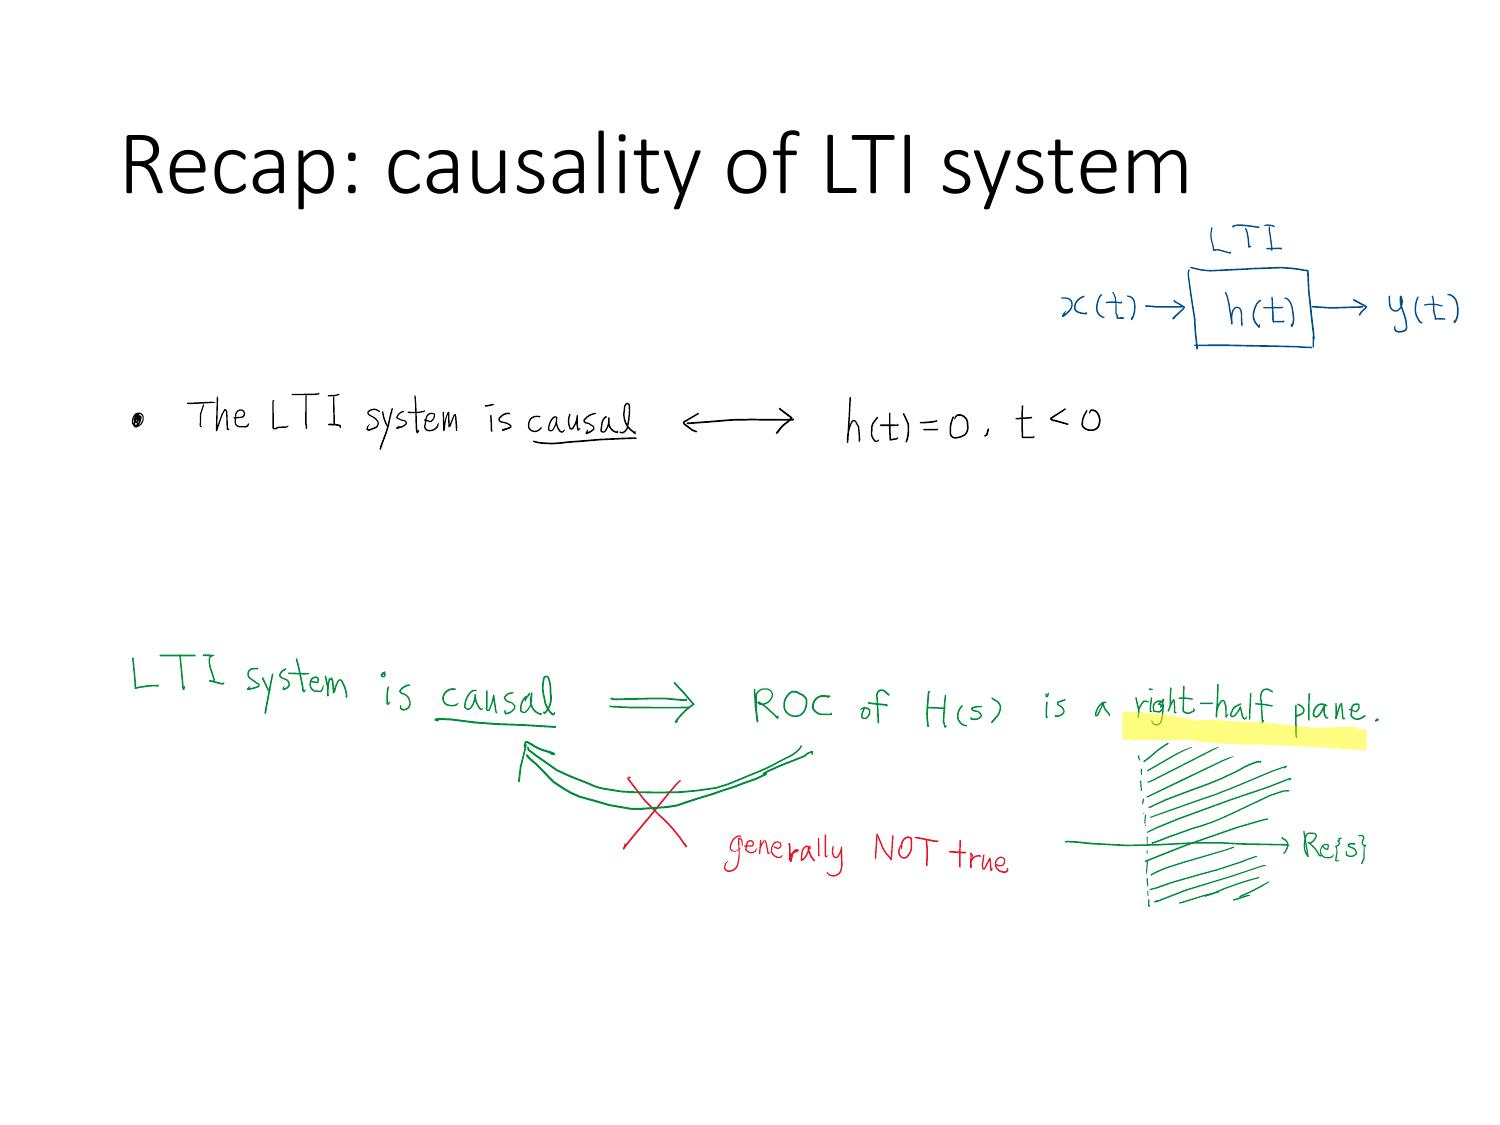 Recap: causality of LTI system
LTI
x(t) → h(t) → y(t)
• The LTI system is causal ⟷ h(t) = 0, t < 0
LTI system is causal ⟹ ROC of H(s) is a right-half plane.
generally NOT true
Re{s}